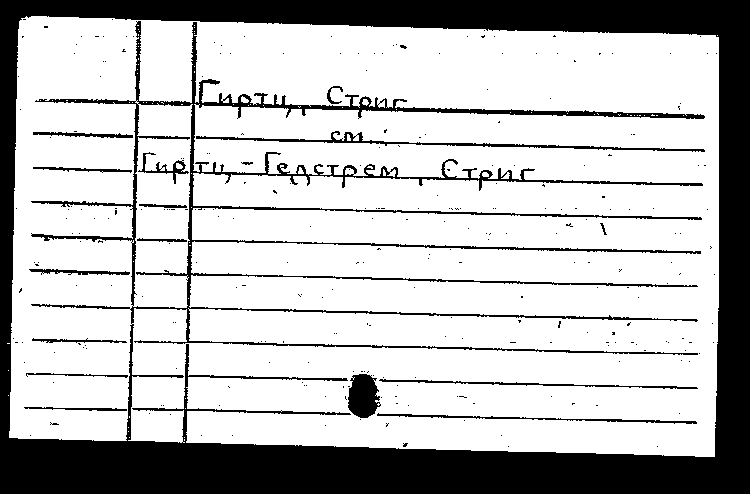 Гиртц, Стриг
см.
Гиртц,-Гедстрем, Стриг